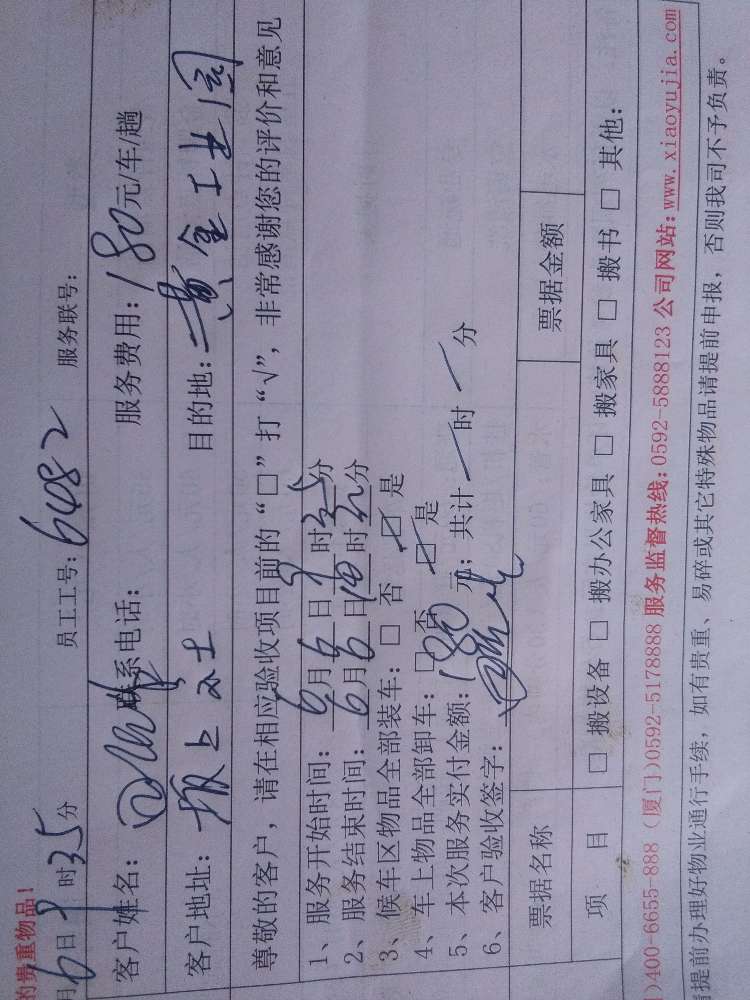 的贵重物品!
月6日9时35分 员工工号:6482 服务联号:
客户姓名: 联系电话: 服务费用:180元/车/趟
客户地址:坂上 目的地:黄金工业园
尊敬的客户,请在相应验收项目前的“□”打“√”,非常感谢您的评价和意见
1、服务开始时间:6月6日9时35分
2、服务结束时间:6月6日10时 分
3、候车区物品全部装车:□否 ☑是
4、车上物品全部卸车:□否 ☑是
5、本次服务实付金额:180元;共计 时 分
6、客户验收签字:
票据名称 票据金额
项目 □搬设备 □搬办公家具 □搬家具 □搬书 □其他:
)400-6655-888 (厦门)0592-5178888 服务监督热线:0592-5888123 公司网站:www.xiaoyujia.com
请提前办理好物业通行手续,如有贵重、易碎或其它特殊物品请提前申报,否则我司不予负责。